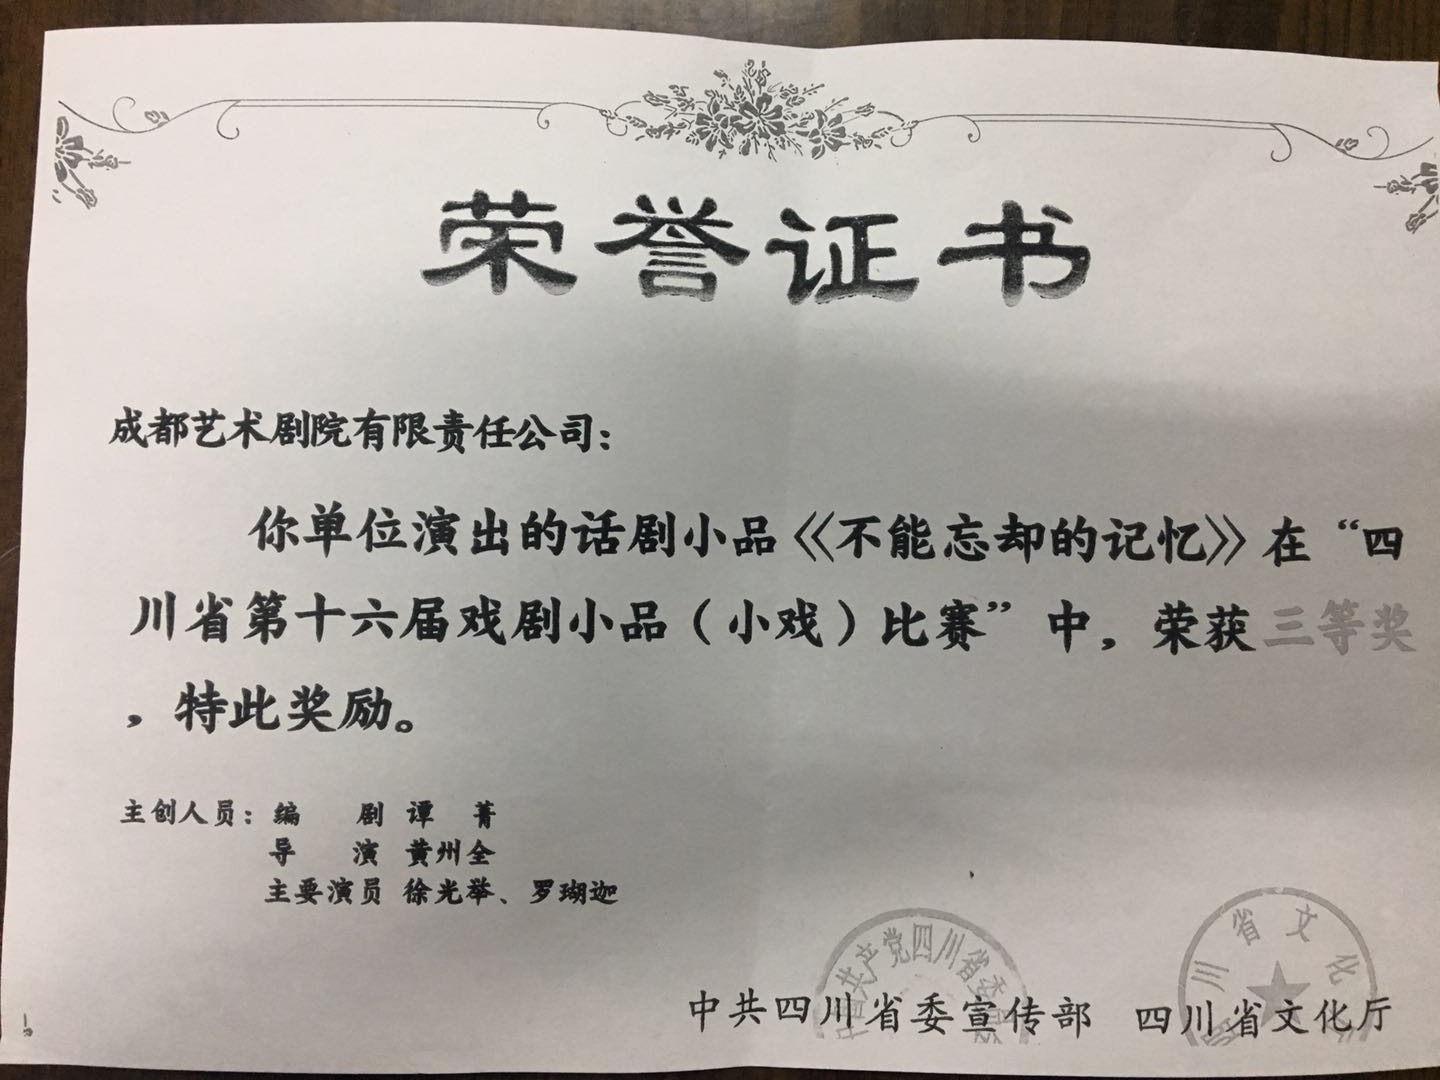 荣誉证书
成都艺术剧院有限责任公司：
你单位演出的话剧小品《不能忘却的记忆》在“四
川省第十六届戏剧小品（小戏）比赛”中，荣获三等奖
，特此奖励。
主创人员：编 剧 谭 菁
导 演 黄州全
主要演员 徐光举、罗瑚迦
中国共产党四川省委员
川省文化
中共四川省委宣传部 四川省文化厅